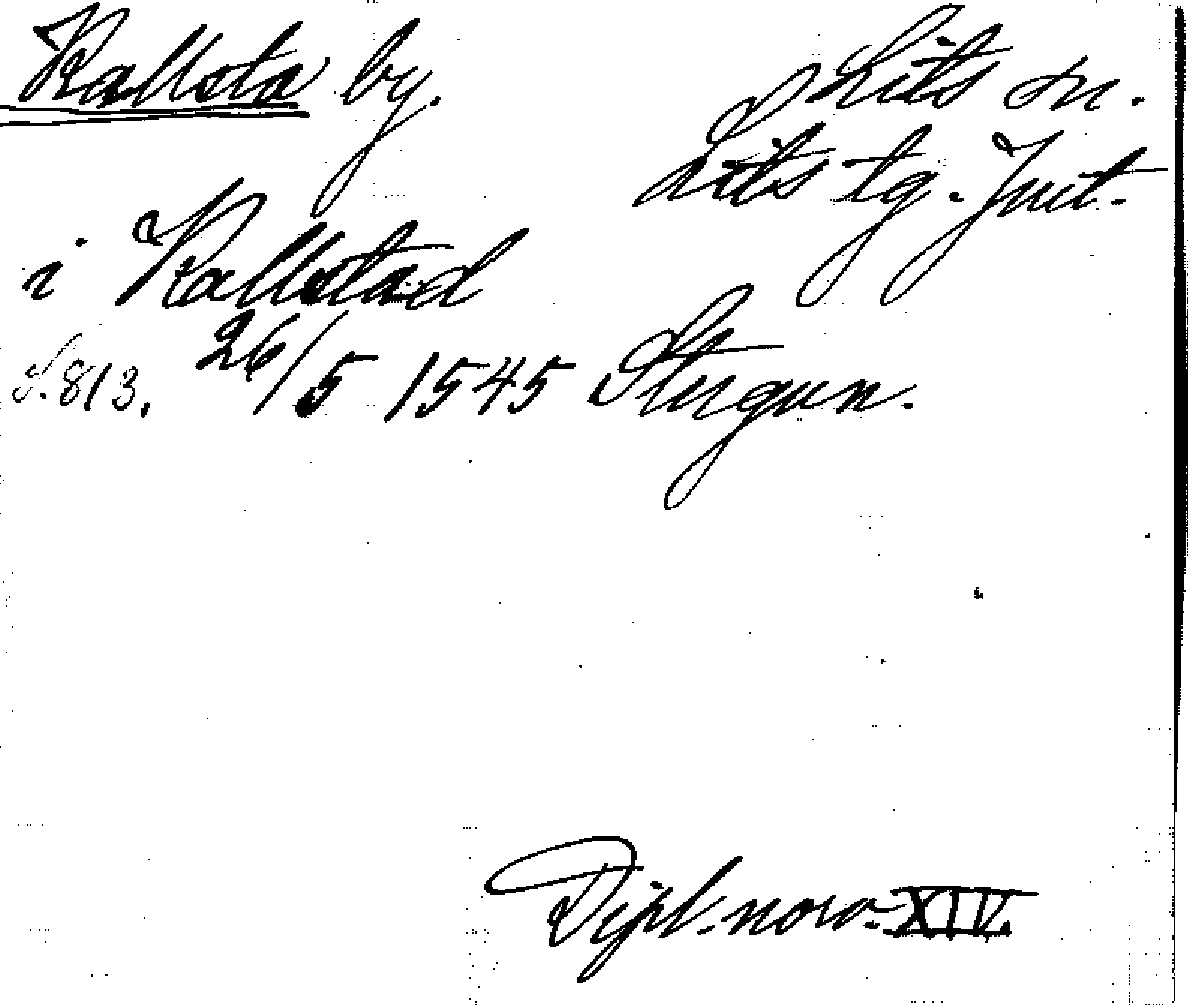 Kallsta by.
Lits sn.
Lits tg. Jmt.
i Kallstad
S. 813. 26/5 1545 Stugun.
Dipl. norv. XIV.